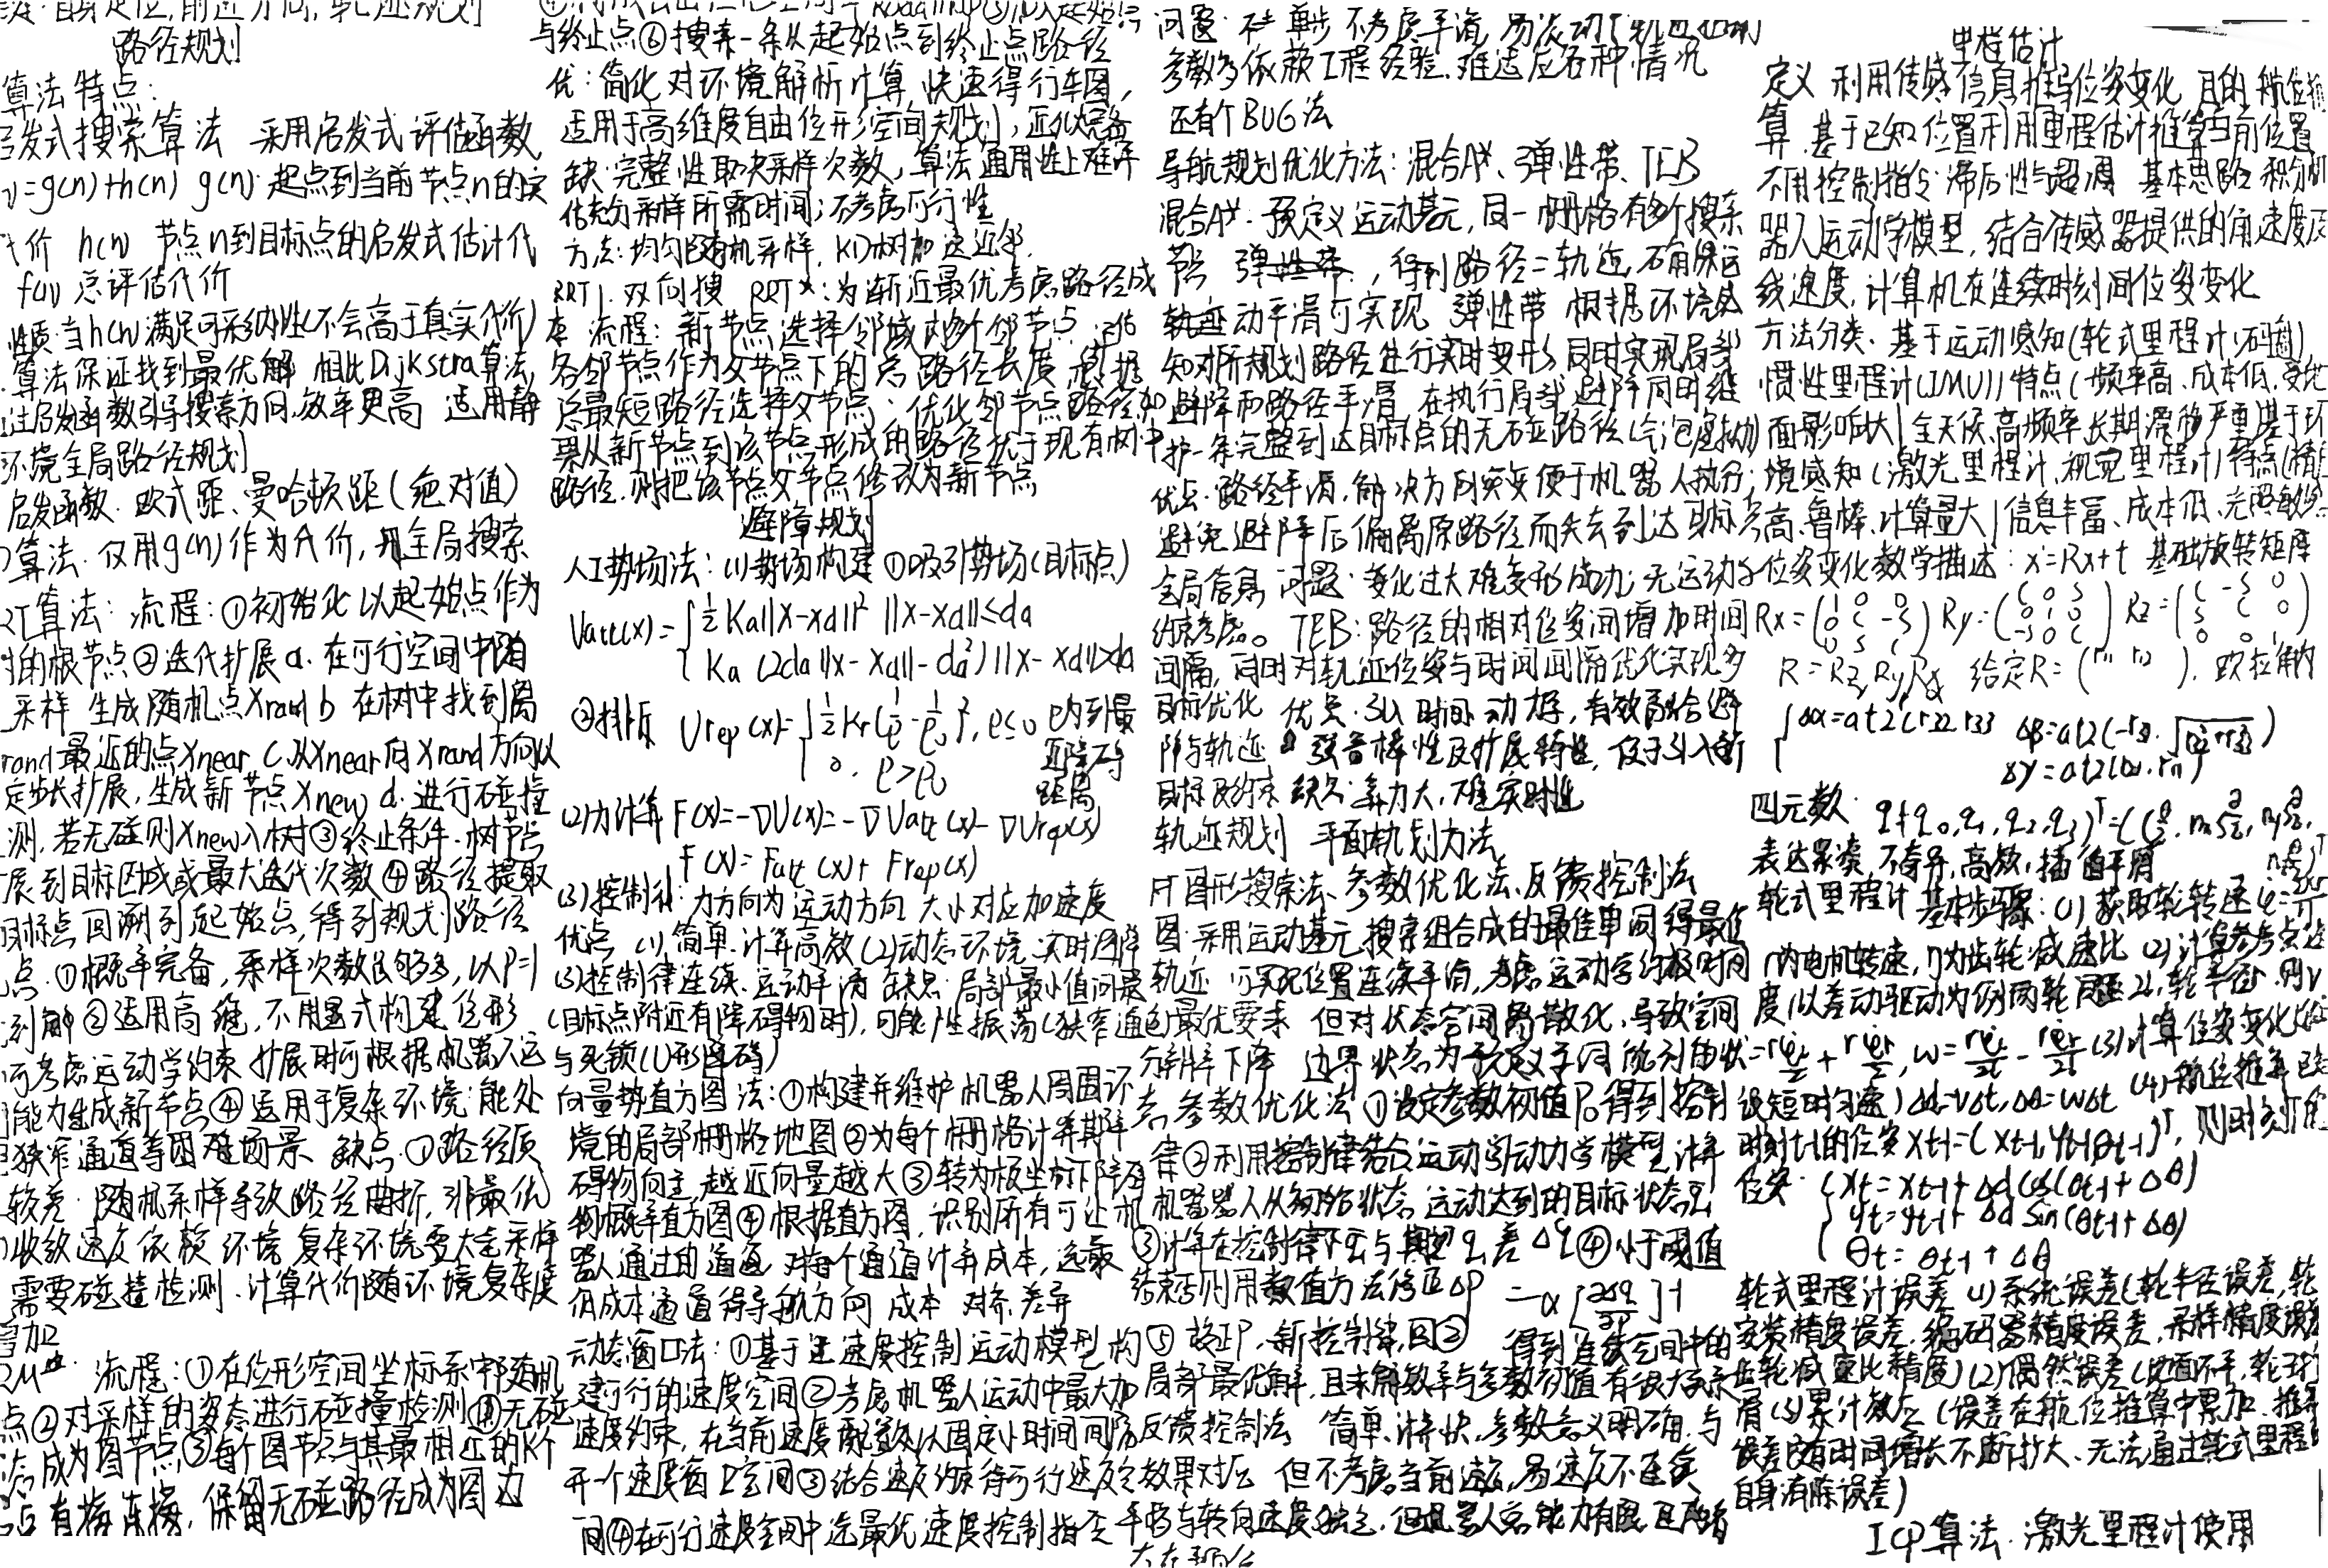 路径规划
算法特点:
发式搜索算法 采用启发式评估函数,
=g(n)+h(n) g(n):起点到当前节点n的实
代价 h(n) 节点n到目标点的启发式估计代
f(n) 总评估代价
性质:当h(n)满足可采纳性(不会高于真实代价)
算法保证找到最优解 相比Dijkstra算法,
过启发函数引导搜索方向,效率更高 适用静
环境全局路径规划
启发函数:欧式距、曼哈顿距(绝对值)
算法:仅用g(n)作为代价,用全局搜索
算法:流程:①初始化 以起始点作为
的根节点②迭代扩展a.在可行空间中随
采样 生成随机点Xrand b 在树中找到离
rand最近的点Xnear c.从Xnear向Xrand方向以
定步长扩展,生成新节点Xnew d.进行碰撞
测,若无碰则Xnew入树③终止条件.树节点
展到目标区域或最大迭代次数④路径提取
目标点回溯到起始点,得到规划路径
点.①概率完备,采样次数足够多,以P=1
到解②适用高维,不用显式构建位形
可考虑运动学约束 扩展时可根据机器人运
能力生成新节点④适用于复杂环境:能处
狭窄通道等困难场景 缺点.①路径质
较差:随机采样导致路径曲折,非最优
收敛速度依赖环境 复杂环境要大量采样
需要碰撞检测.计算代价随环境复杂度
增加
流程:①在位形空间坐标系中随机
点②对采样的姿态进行碰撞检测 无碰
成为图节点③每个图节点与其最相近的K个
点直接连接,保留无碰路径成为图边
与终止点⑥搜索一条从起始点到终止点路径
优:简化对环境解析计算 快速得行车图,
适用于高维度自由位形空间规划,
缺:完整性取决采样次数,算法通用性上难评
估充分采样所需时间;不考虑可行性
方法:均匀随机采样,KD树加速近邻.
RRT).双向搜 RRT*:为渐近最优考虑路径成
本 流程:新节点选择邻域内多个邻节点
各邻节点作为父节点下的总路径长度 根据
总最短路径选择父节点;优化邻节点路径如
果从新节点到该节点形成的路径优于现有树中
路径.则把该节点父节点修改为新节点
避障规划
人工势场法:(1)势场构建 ①吸引势场(目标点)
Vatt(x)= { ½Ka||x-xd||² ||x-xd||≤da
Ka(2da||x-xd||-da²) ||x-xd||>da
②排斥 Urep(x)= { ½Kr(1/ρ-1/ρ0)², ρ≤ρ0 ρ为到最
0. ρ>ρ0 近障碍
距离
(2)力计算 F(x)=-∇U(x)=-∇Uatt(x)-∇Urep(x)
F(x)=Fatt(x)+Frep(x)
(3)控制律:力方向为运动方向 大小对应加速度
优点 (1)简单.计算高效(2)动态环境.实时避障
(3)控制律连续.运动平滑 缺点:局部最小值问题
(目标点附近有障碍物时),可能产生振荡(狭窄通道)
与死锁(U形障碍)
向量势直方图法:①构建并维护机器人周围环
境的局部栅格地图②为每个栅格计算其障
碍物向量 越近向量越大③转为极坐标下障碍
物概率直方图④根据直方图,识别所有可让机
器人通过的通道 对每个通道计算成本,选最
低成本通道得导航方向 成本 对齐.差异
动态窗口法:①基于速度控制运动模型构
建可行的速度空间②考虑机器人运动中最大加
速度约束,在当前速度配置以固定小时间间隔
开一个速度窗口空间③结合速度约束得可行速度空
间④在可行速度空间中选最优速度控制指令
参数多依赖工程经验.难适应各种情况
还有个BUG法
导航规划优化方法:混合A*、弹性带、TEB
混合A*:预定义运动基元,同一栅格有多个搜索
节点 弹性带,得到路径=轨迹,不确保运
轨迹动平滑可实现 弹性带 根据环境感
知对所规划路径进行实时变形,同时实现局部
避障和路径平滑 在执行局部避障同时维
护一条完整到达目标点的无碰路径(气泡)
优点:路径平滑,解决方向突变便于机器人执行;
避免避障后偏离原路径而失去到达目标点
全局信息 问题:变化过大难变形成功;无运动学
约束考虑。TEB:路径的相对位姿间增加时间
间隔,同时对轨迹位姿与时间间隔优化实现多
目标优化 优点:引入时间动力学,有效融合避
障与轨迹 强鲁棒性及扩展特性,便于引入新
目标及约束 缺点:算力大,难实时性
轨迹规划 平面轨划方法
图形搜索法、参数优化法、反馈控制法
图:采用运动基元,搜索组合成的最佳单词得最优
轨迹 可实现位置连续平滑,考虑运动学约极时间
最优要求 但对状态空间离散化,导致空间
分辨率下降 边界状态为预定义子词能到的状
态.参数优化法①设定参数初值P。得到控制
律②利用控制律结合运动学动力学模型计算
机器人从初始状态运动达到的目标状态
③计算在控制律下q与期望q差Δq④小于阈值
结束否则用数值方法修正ΔP =-α[∂Δq/∂P]-1
⑤改正P.新控制律,回② 得到连续空间中的
局部最优解,且求解效率与参数初值有很大关系
反馈控制法 简单.计算快.参数意义明确.与
效果对应 但不考虑当前速度,易速度不连续
平移与转向速度独立.但机器人总能力有限
里程估计
定义 利用传感信息推导位姿变化 目的 航位推
算.基于已知位置利用里程估计推算当前位置
不用控制指令:滞后性与超调 基本思路 积分机
器人运动学模型,结合传感器提供的角速度及
线速度,计算机在连续时刻间位姿变化
方法分类.基于运动感知(轮式里程计(码盘)
惯性里程计(IMU)) 特点(频率高、成本低、受地
面影响大|全天候、高频率长期漂移严重)基于环
境感知(激光里程计、视觉里程计)特点(精
高、鲁棒、计算量大|信息丰富、成本低、光照敏感
位姿变化数学描述:x'=Rx+t 基础旋转矩阵
Rx=(1 0 0 0 c -s 0 s c) Ry=(c 0 s 0 1 0 -s 0 c) Rz=(c -s 0 s c 0 0 0 1)
R=Rz Ry Rx 给定R=(r11 r12 ).欧拉角为
{ Δα=at2(r32,r33) Δβ=at2(-r31,√(r32²+r33²))
Δγ=at2(r21,r11)
四元数
表达紧凑,不奇异,高效,插值平滑
轮式里程计 基本步骤:(1)获取轮转速
n为电机转速,η为齿轮减速比 (2)计算参考点速
度(以差动驱动为例两轮间距2l,轮半径r.则v
=rφl/2+rφr/2,w=rφr/2l-rφl/2l (3)计算位姿变化
设短时匀速)Δd=vΔt,Δθ=wΔt (4)航位推算 已知
时刻t-1的位姿Xt-1=(xt-1,yt-1,θt-1)T,则时刻t的
位姿:{ xt=xt-1+Δdcos(θt-1+Δθ)
yt=yt-1+Δdsin(θt-1+Δθ)
θt=θt-1+Δθ
轮式里程计误差 (1)系统误差(轮半径误差,轮
安装精度误差.编码器精度误差,采样精度误差
齿轮减速比精度)(2)偶然误差(地面不平,轮子打
滑(3)累计效应(误差在航位推算中累加.推算
误差随时间增长不断扩大、无法通过轮式里程
自身消除误差)
ICP算法:激光里程计使用